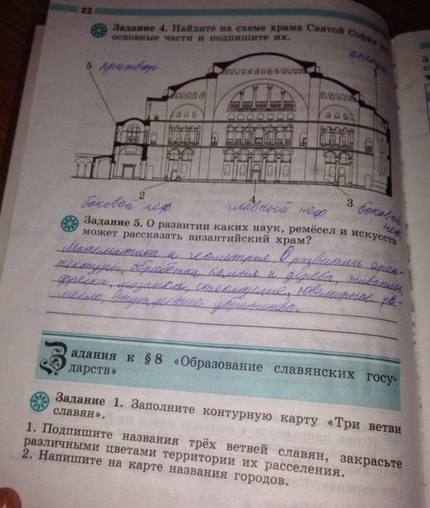 22
Задание 4. Найдите на схеме храма Святой Софии
основные части и подпишите их.
апсида
5 притвор
2
4
3
боковой неф главный неф боковой
неф
Задание 5. О развитии каких наук, ремёсел и искусств
может рассказать византийский храм?
Математика и геометрия. О развитии архи-
тектуры, обработка камня и дерева, живопись,
фрески, мозаика, стеклоделие, ювелирное ре-
месло,
Задания к § 8 «Образование славянских госу-
дарств»
Задание 1. Заполните контурную карту «Три ветви
славян».
1. Подпишите названия трёх ветвей славян, закрасьте
различными цветами территории их расселения.
2. Напишите на карте названия городов.